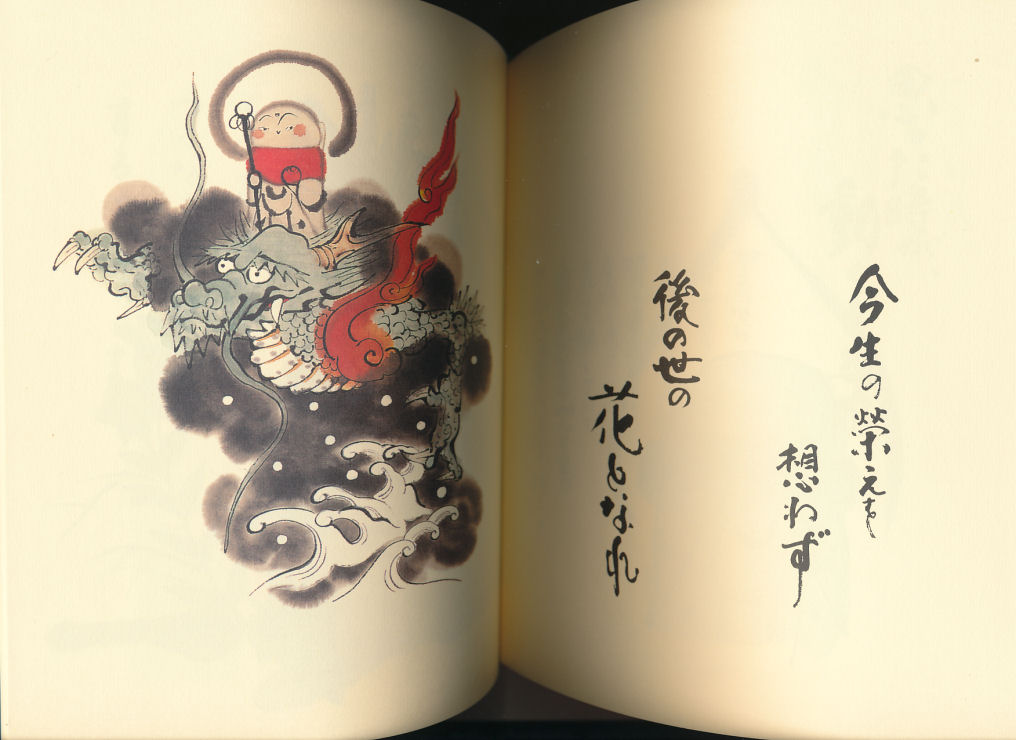 今生の榮えを
想わず
後の世の
花となれ